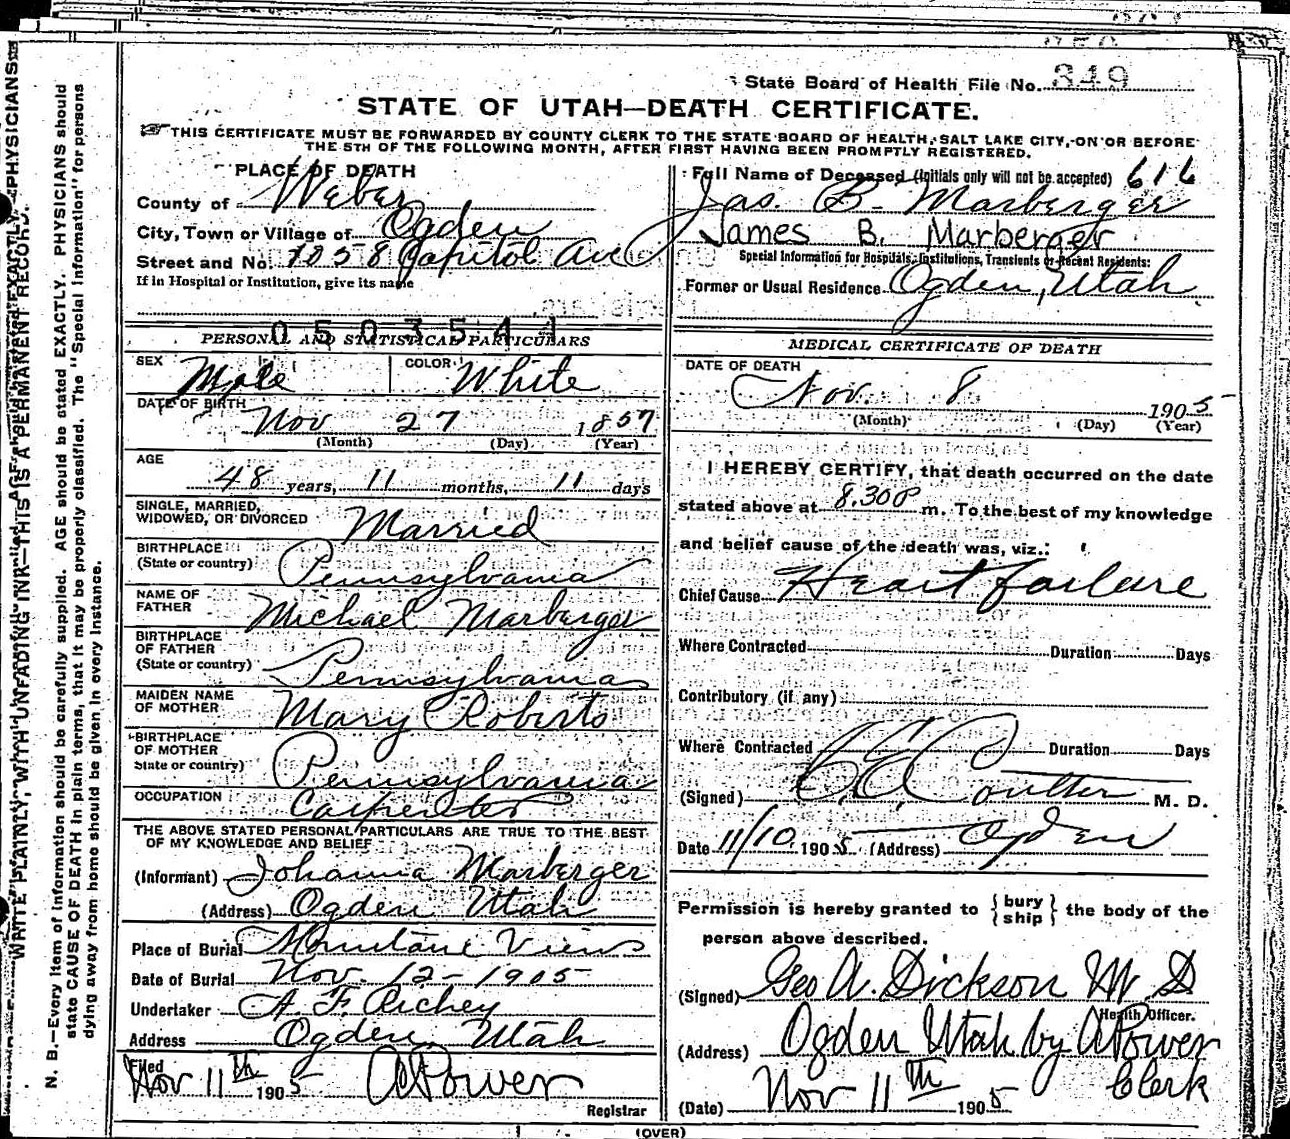 State Board of Health File No. 349
STATE OF UTAH—DEATH CERTIFICATE.
THIS CERTIFICATE MUST BE FORWARDED BY COUNTY CLERK TO THE STATE BOARD OF HEALTH, SALT LAKE CITY, ON OR BEFORE
THE 5TH OF THE FOLLOWING MONTH, AFTER FIRST HAVING BEEN PROMPTLY REGISTERED.
PLACE OF DEATH
County of Weber
City, Town or Village of Ogden
Street and No. 1858 Capitol Ave
If in Hospital or Institution, give its name
0503544
PERSONAL AND STATISTICAL PARTICULARS
SEX Male COLOR White
DATE OF BIRTH
Nov 27 1857
(Month) (Day) (Year)
AGE
48 years, 11 months, 11 days
SINGLE, MARRIED,
WIDOWED, OR DIVORCED Married
BIRTHPLACE
(State or country) Pennsylvania
NAME OF
FATHER Michael Marberger
BIRTHPLACE
OF FATHER
(State or country) Pennsylvania
MAIDEN NAME
OF MOTHER Mary Roberts
BIRTHPLACE
OF MOTHER
State or country) Pennsylvania
OCCUPATION Carpenter
THE ABOVE STATED PERSONAL PARTICULARS ARE TRUE TO THE BEST
OF MY KNOWLEDGE AND BELIEF
(Informant) Johanna Marberger
(Address) Ogden Utah
Place of Burial Mountain View
Date of Burial Nov. 12- 1905
Undertaker A. F. Richey
Address Ogden Utah
Filed
Nov 11th 1905 A Power
Registrar
Full Name of Deceased (Initials only will not be accepted) 616
Jas. B. Marberger
James B. Marberger
Special Information for Hospitals, Institutions, Transients or Recent Residents:
Former or Usual Residence Ogden, Utah
MEDICAL CERTIFICATE OF DEATH
DATE OF DEATH
Nov. 8 1905
(Month) (Day) (Year)
I HEREBY CERTIFY, that death occurred on the date
stated above at 8.30 P m. To the best of my knowledge
and belief cause of the death was, viz.:
Chief Cause Heart failure
Where Contracted Duration Days
Contributory (if any)
Where Contracted Duration Days
(Signed) C.E. Coulter M. D.
Date 11/10 1905 (Address) Ogden
Permission is hereby granted to { bury ship } the body of the
person above described.
(Signed) Geo A. Dickson M D
Health Officer.
(Address) Ogden Utah by A Power
Clerk
(Date) Nov 11th 1905
(OVER)
WRITE PLAINLY, WITH UNFADING INK—THIS IS A PERMANENT RECORD.
N. B.—Every item of information should be carefully supplied. AGE should be stated EXACTLY. PHYSICIANS should
state CAUSE OF DEATH in plain terms, that it may be properly classified. The "Special Information" for persons
dying away from home should be given in every instance.